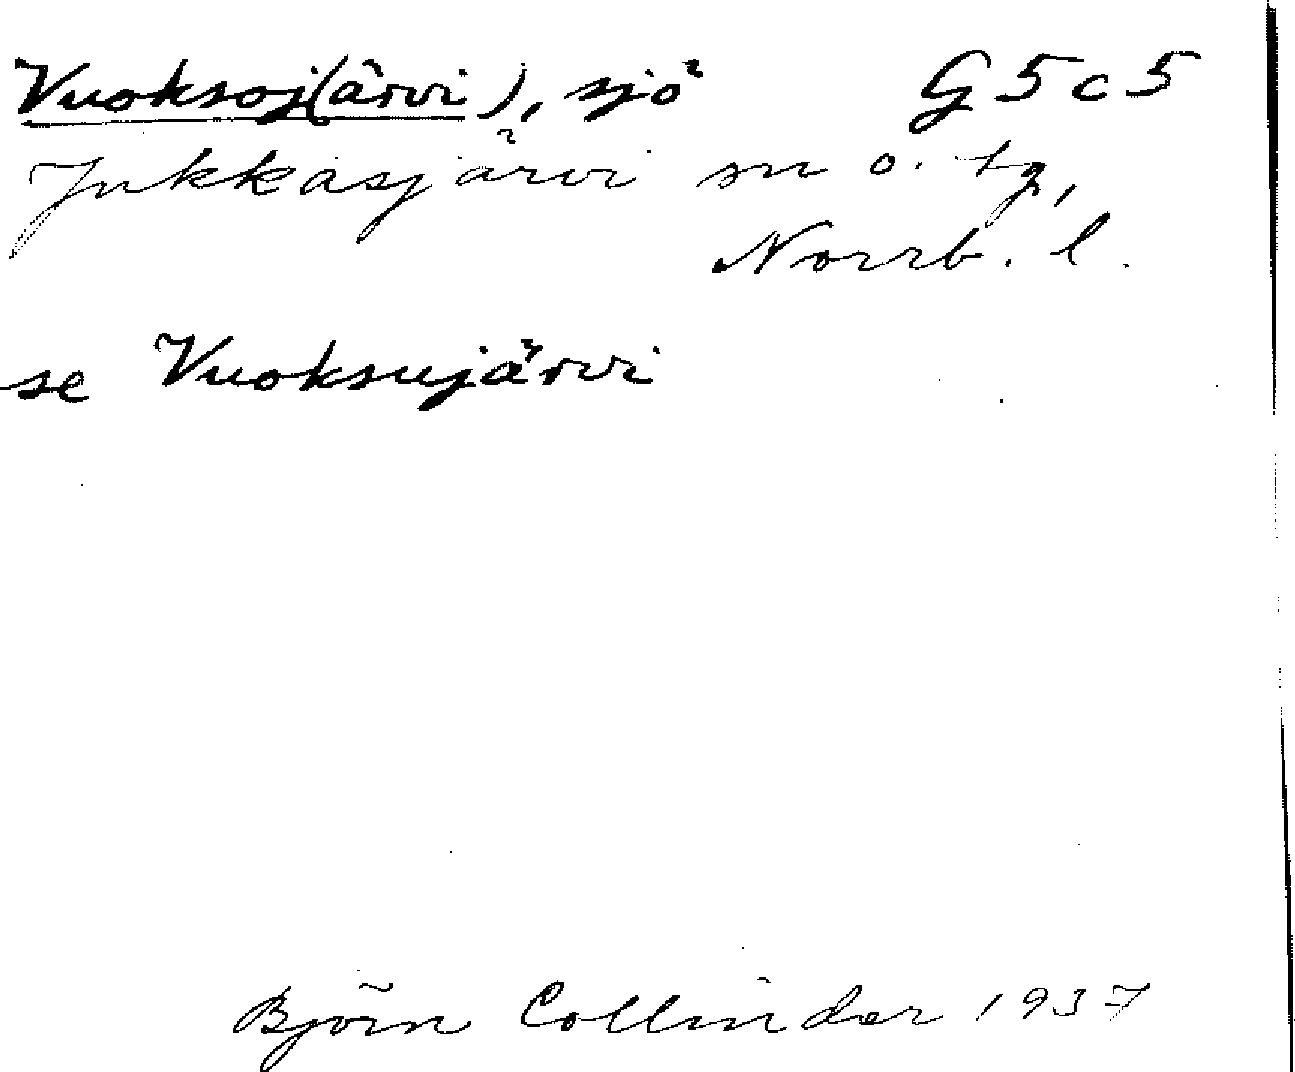 Vuoksoj(ärvi), sjö G5c5
Jukkasjärvi sn o. tg,
Norrb. l.
se Vuoksujärvi
Björn Collinder 1937